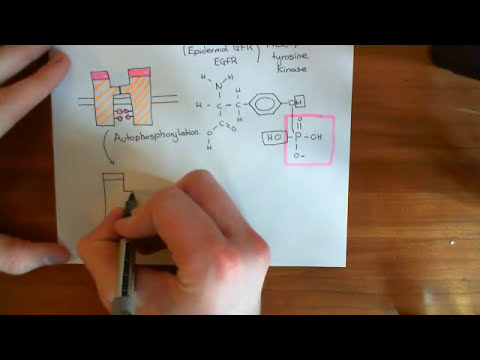 (Epidermal GFR)
EGFR
tyrosine
kinase
H H
N
H
H C C
H
C O
O
H
OH
O
HO P OH
O-
Autophosphorylation